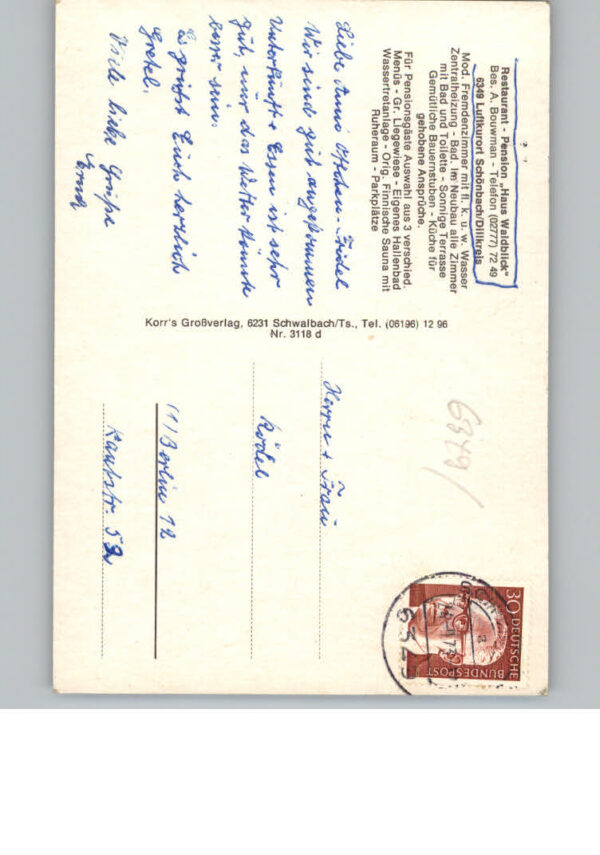 Restaurant - Pension „Haus Waldblick"
Bes. A. Bouwman - Telefon (02777) 72 49
6349 Luftkurort Schönbach/Dillkreis
Mod. Fremdenzimmer mit fl. k. u. w. Wasser
Zentralheizung - Bad. Im Neubau alle Zimmer
mit Bad und Toilette - Sonnige Terrasse
Gemütliche Bauernstuben - Küche für
gehobene Ansprüche.
Für Pensionsgäste Auswahl aus 3 verschied.
Menüs - Gr. Liegewiese - Eigenes Hallenbad
Wassertretanlage - Orig. Finnische Sauna mit
Ruheraum - Parkplätze
Liebe Anni
Wir sind gut angekommen
Unterkunft + Essen ist sehr
gut, nur das Wetter könnte
besser sein.
Es grüsst Euch herzlich
Gretel.
Viele liebe Grüße
Korr's Großverlag, 6231 Schwalbach/Ts., Tel. (06196) 12 96
Nr. 3118 d
6349/
30 DEUTSCHE
BUNDESPOST
Herrn + Frau
Rödel
(1) Berlin 12
Kantstr. 52